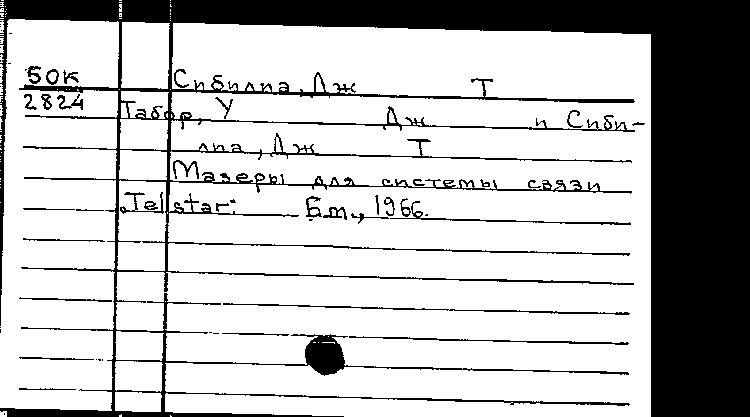 50К Сибилиа, Дж Т
2824 Табор, У Дж и Сиби-
лиа, Дж Т
Мазеры для системы связи
"Telstar". Б.м., 1966.